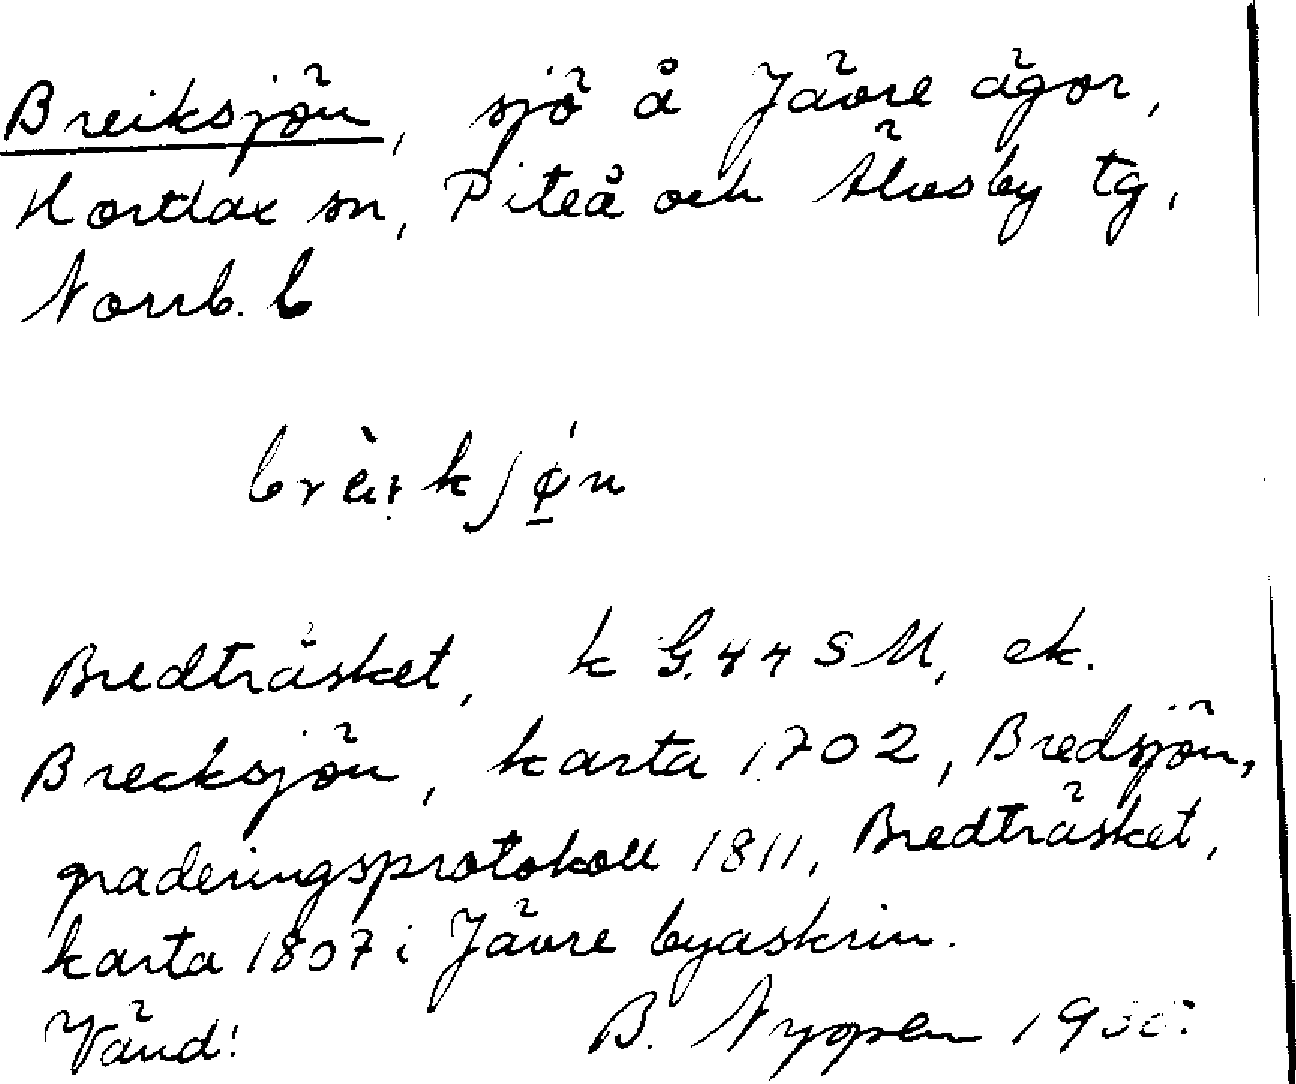 Breiksjön, sjö å Jävre ägor,
Hortlax sn, Piteå och Älvsby tg,
Norrb. l
Bredträsket, k G. 44 S M, ek.
Brecksjön, karta 1702, Bredsjön,
graderingsprotokoll 1811, Bredträsket,
karta 1807 i Jävre byaskrin.
Vänd! B. Nygren